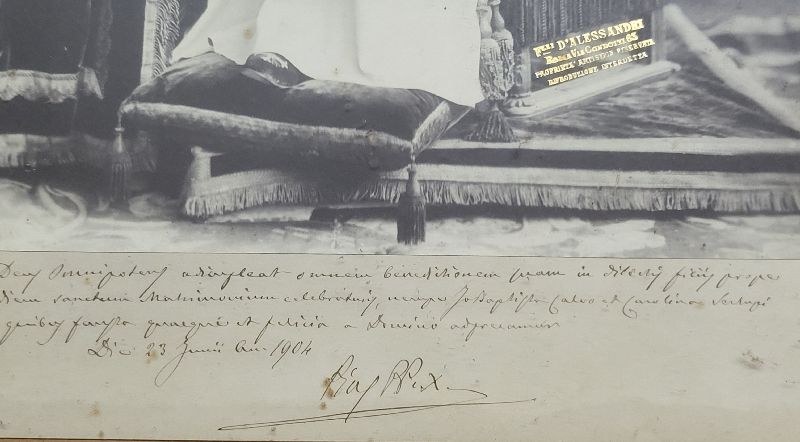 Fratelli D'ALESSANDRI
ROMA VIA CONDOTTI 63
PROPRIETÀ ARTISTICA RISERVATA
RIPRODUZIONE INTERDETTA
Deus Omnipotens adimpleat omnem benedictionem suam in dilectis filiis prope
diem sanctum Matrimonium celebraturis, nempe Jo Baptista Calvo et Carolina
quibus fausta quaeque et felicia a Domino adprecamur
Die 23 Junii An 1904
Pius PP. X.